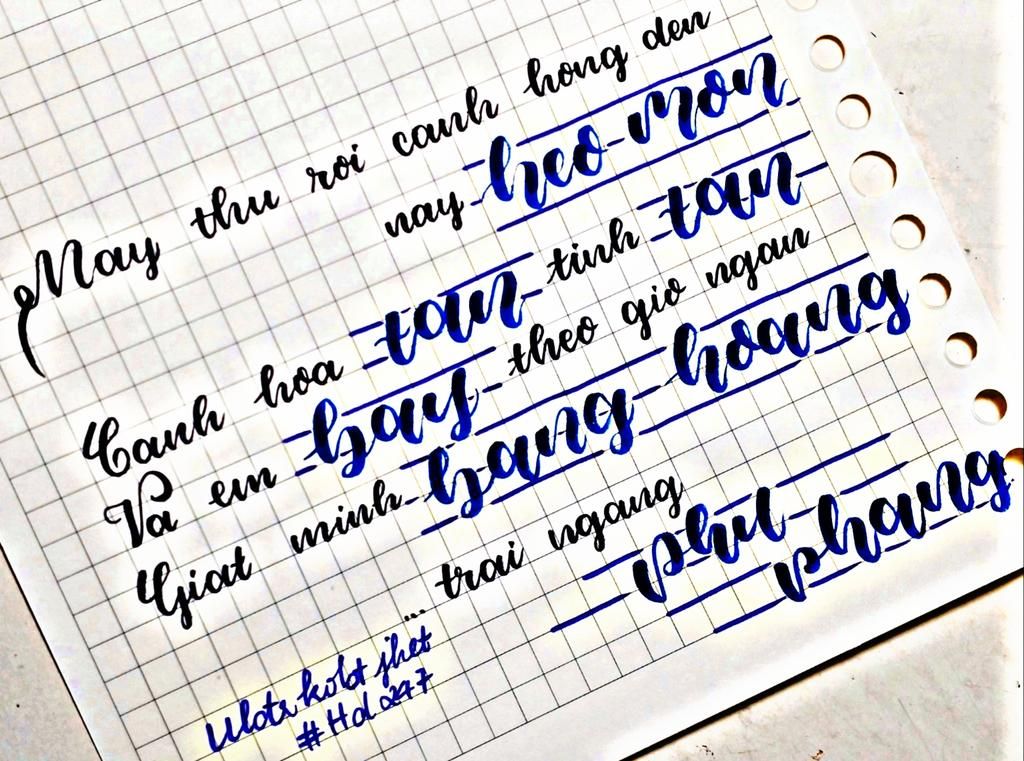 May thu roi canh hong den
nay heo mon
Canh hoa tan tinh tan
Va em bay theo gio ngan
Giat minh bang hoang
... trai ngang
phu
phang
#Hd247